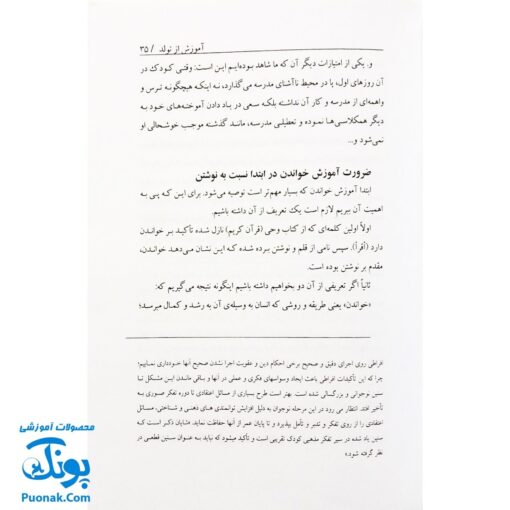 آموزش از تولد / ۳۵
و. یکی از امتیازات دیگر آن که ما شاهد بوده‌ایم این است: وقتی کودک در
آن روزهای اول، پا در محیط ناآشنای مدرسه می‌گذارد، نه اینکه هیچگونه ترس و
واهمه‌ای از مدرسه و کار آن نداشته بلکه سعی در یاد دادن آموخته‌های خود به
دیگر همکلاسی‌ها نموده و تعطیلی مدرسه، مانند گذشته موجب خوشحالی او
نمی‌شود و...
ضرورت آموزش خواندن در ابتدا نسبت به نوشتن
ابتدا آموزش خواندن که بسیار مهم‌تر است توصیه می‌شود. برای این که پی به
اهمیت آن ببریم لازم است یک تعریف از آن داشته باشیم.
اولاً اولین کلمه‌ای که از کتاب وحی (قرآن کریم) نازل شده تأکید بر خواندن
دارد (اقرأ). سپس نامی از قلم و نوشتن برده شده که این نشان می‌دهد خواندن،
مقدم بر نوشتن بوده است.
ثانیاً اگر تعریفی از آن دو بخواهیم داشته باشیم اینگونه نتیجه می‌گیریم که:
«خواندن» یعنی طریقه و روشی که انسان به وسیله‌ی آن به رشد و کمال میرسد؛
افراطی روی اجرای دقیق و صحیح برخی احکام دین و عقوبت اجرا نشدن صحیح آنها خودداری نماییم؛
چرا که این تأکیدات افراطی باعث ایجاد وسواسهای فکری و عملی در آنها و باقی ماندن این مشکل تا
سنین نوجوانی و بزرگسالی شده است. بهتر است طرح بسیاری از مسائل اعتقادی تا دوره تفکر صوری به
تأخیر افتد. انتظار می رود در این مرحله نوجوان به دلیل افزایش توانمندی های ذهنی و شناختی، مسائل
اعتقادی را از روی تفکر و تدبر و تأمل بپذیرد و تا پایان عمر از آنها حفاظت نماید. شایان ذکر است که
سنین یاد شده در سیر تفکر مذهبی کودک تقریبی است و تأکید میشود که نباید به عنوان سنین قطعی در
نظر گرفته شود.»
محصولات آموزشی
پونک
Puonak.Com